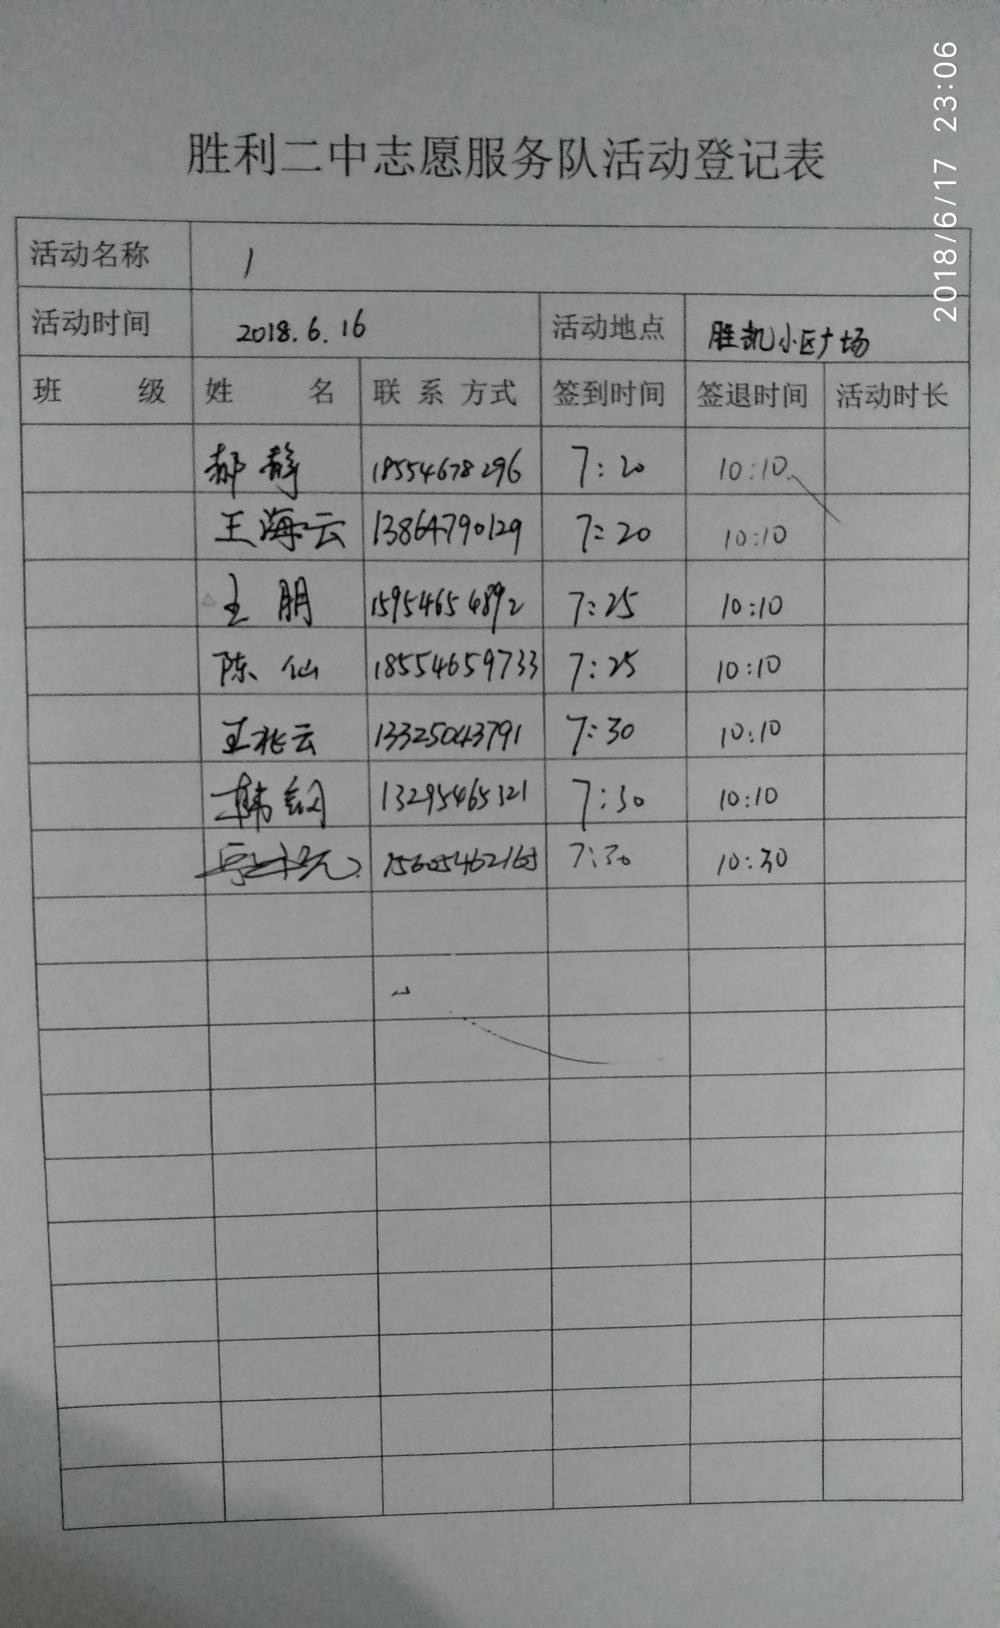 2018/6/17 23:06
胜利二中志愿服务队活动登记表
活动名称 1
活动时间 2018.6.16 活动地点 胜凯小区广场
班 级 姓 名 联系方式 签到时间 签退时间 活动时长
郝静 18554678296 7:20 10:10
王海云 13864790129 7:20 10:10
王朋 15954654892 7:25 10:10
陈仙 18554659733 7:25 10:10
王兆云 13325043791 7:30 10:10
韩钢 13295465321 7:30 10:10
7:30 10:30